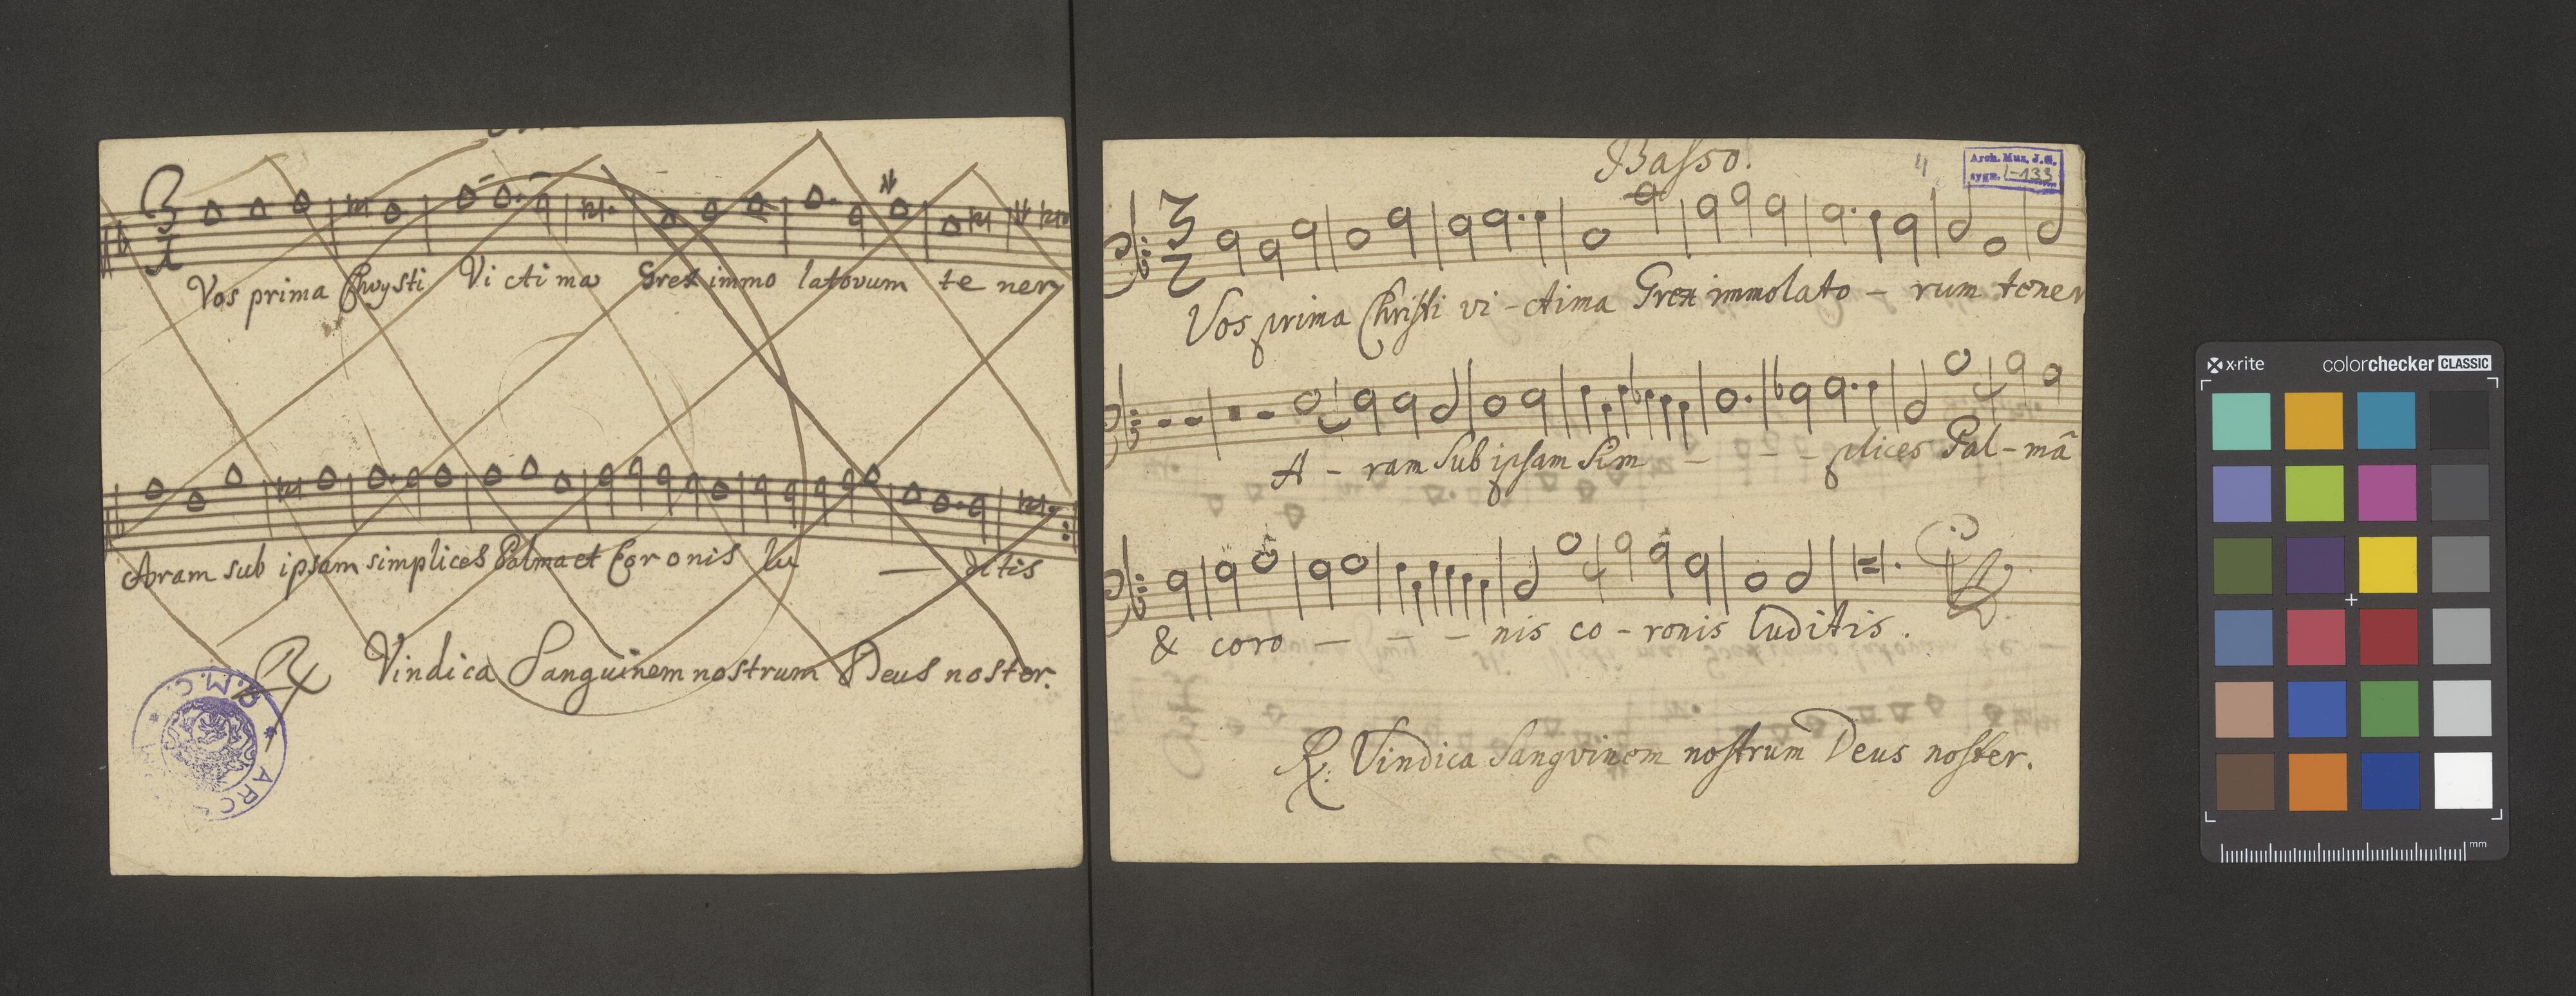 3
1
Vos prima Chrysti Victima Grex immo latorum te ner
Aram sub ipsam simplices Palma et Coronis lu — ditis
℟ Vindica Sanguinem nostrum Deus noster.
Basso.
4
Arch. Muz. J.G.
sygn. I-133
3
2
Vos prima Christi vi - ctima Grex immolato - rum tener
A - ram Sub ipsam Sim - - - plices Pal - mã
& coro - - - nis co - ronis luditis.
℟. Vindica Sangvinem nostrum Deus noster.
x·rite colorchecker CLASSIC
mm